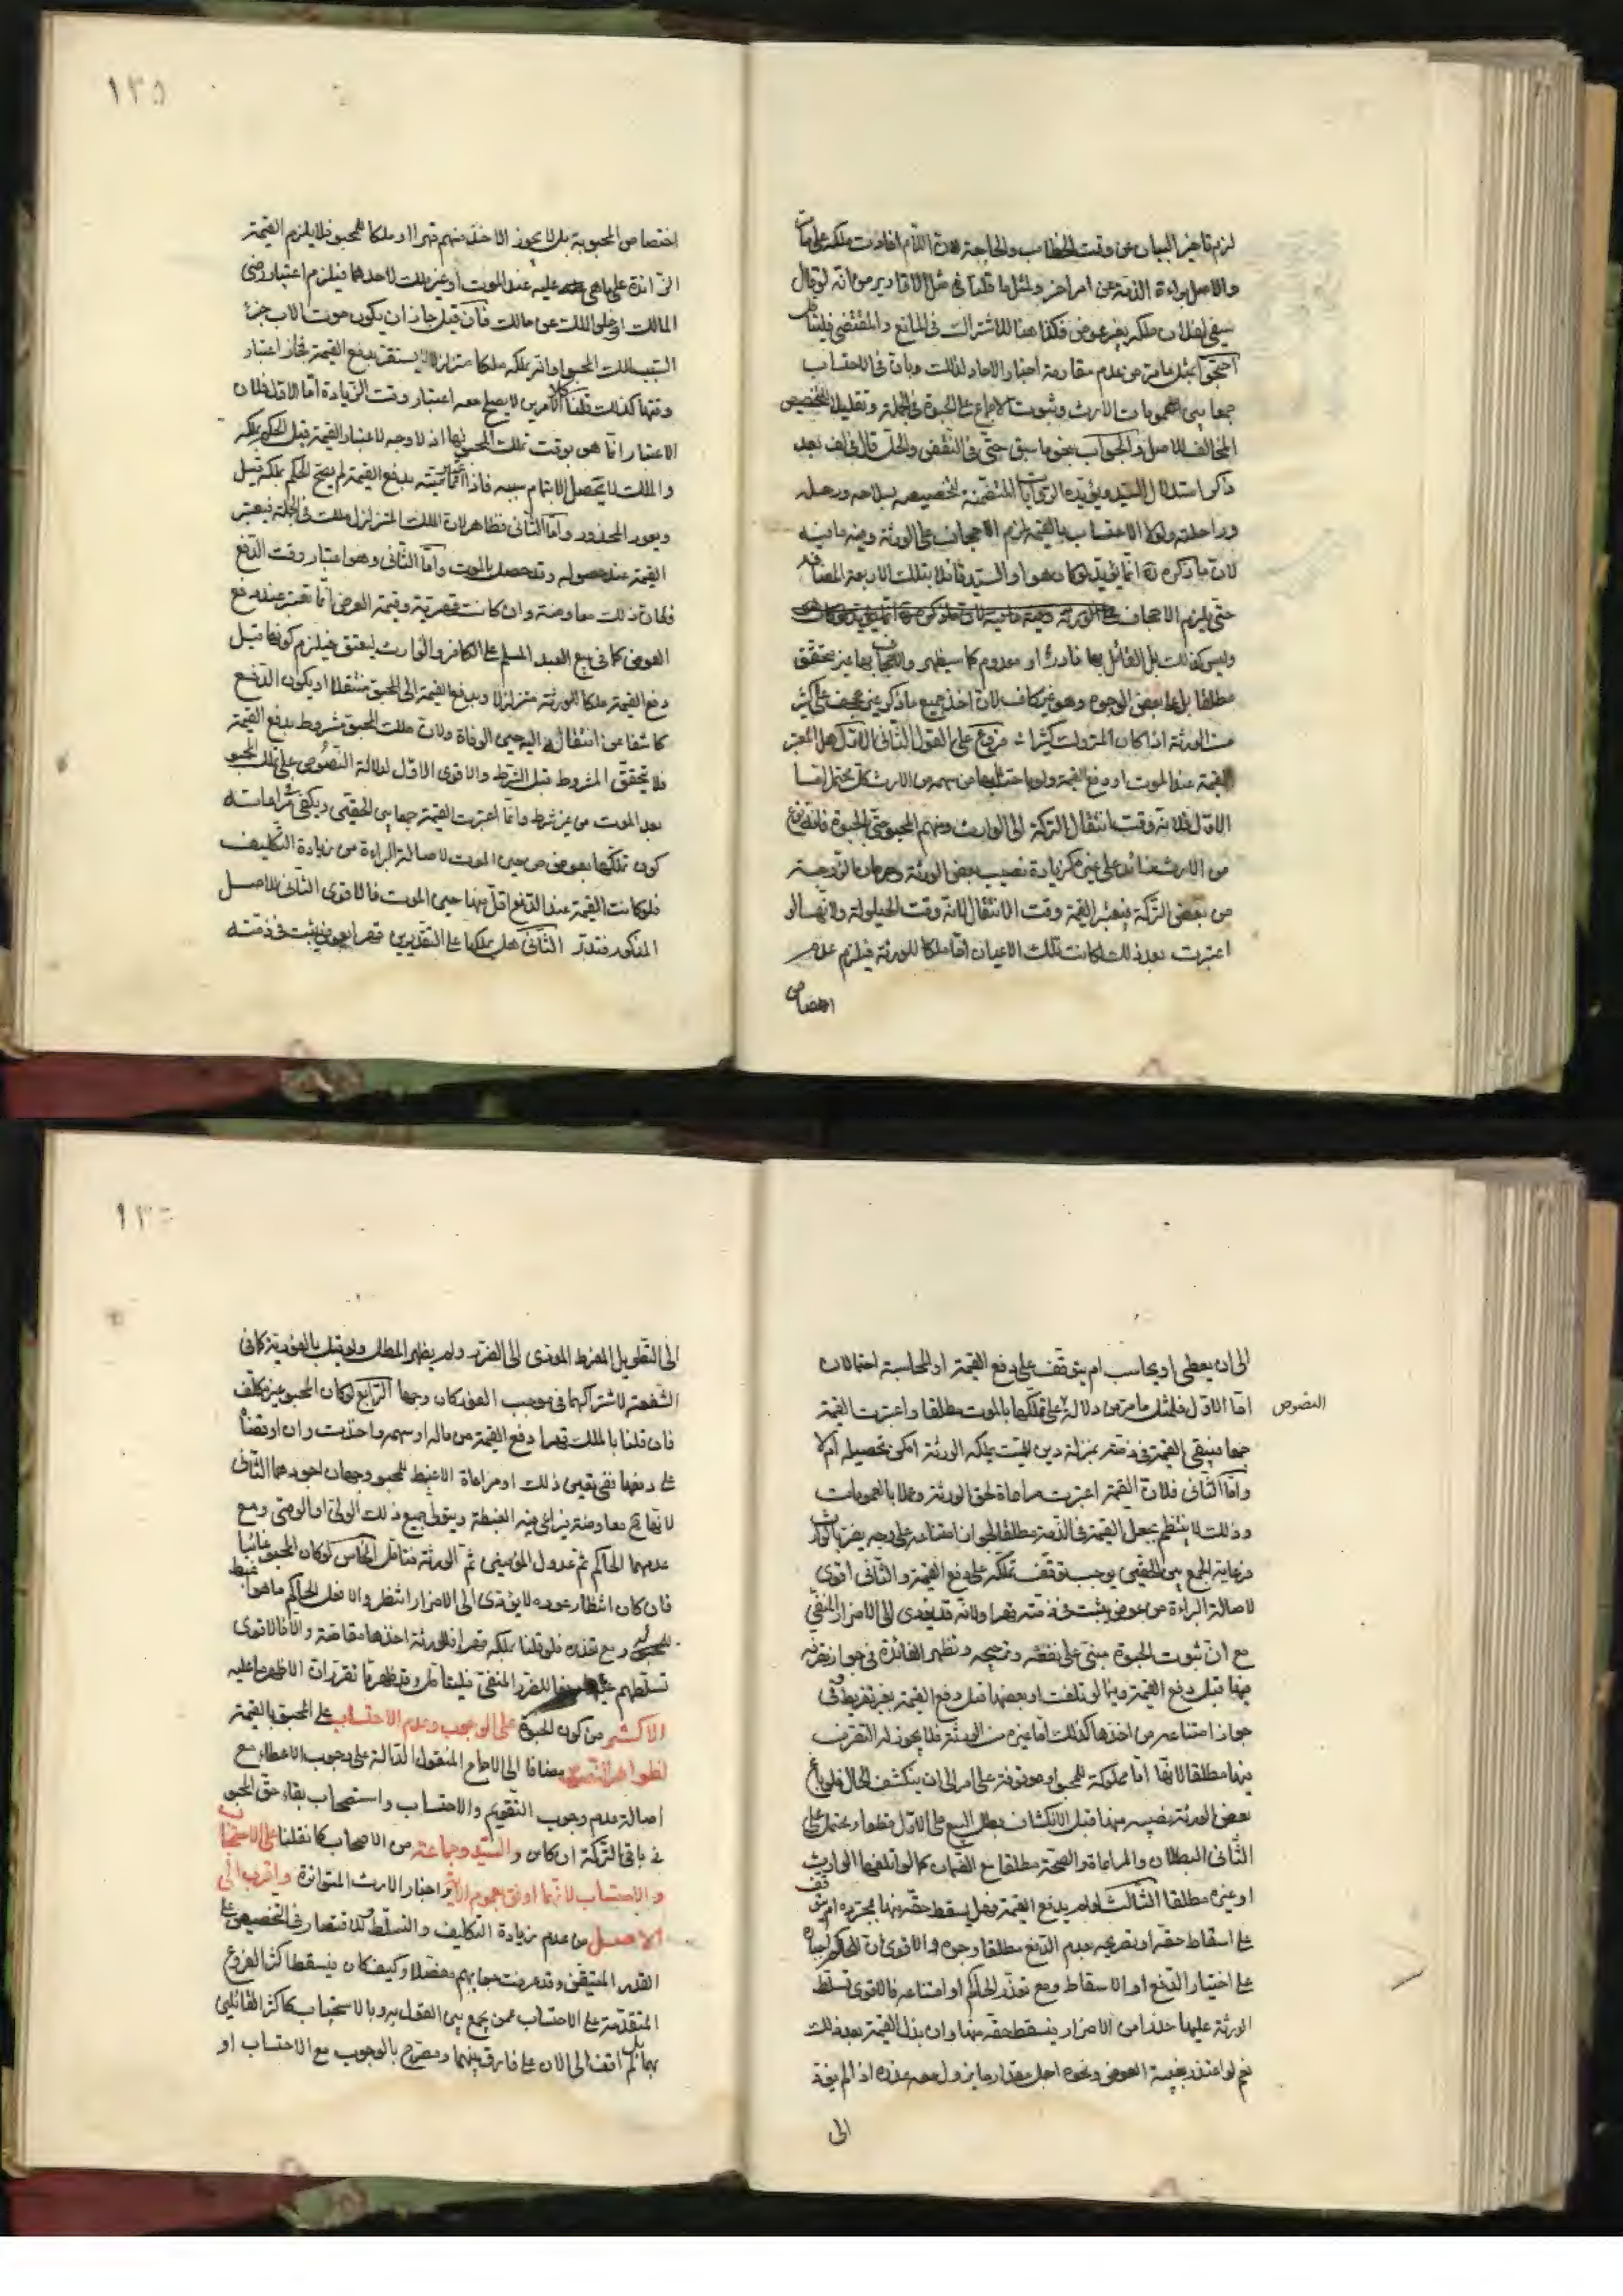 لزم تاخير البيان عن وقت الخطاب والحاجة لان اللام افادت ملكه على ما مر
والاصل براءة الذمة عن امر اخر ولمثل ما قلنا في مثل الاقارير من انه لو قال
سيفي لفلان ملكه بغير عوض فكذا هنا للاشتراك في المانع والمقتضي فليتامل
احتجوا بمثل ما مر من عدم مقاومة اخبار الاحاد لذلك وبان في الاحتساب
جمعا بين عمومات الارث وثبوت الاجماع على الحبوة في الجملة وتقليلا للتخصيص
المخالف للاصل والجواب بنحو ما سبق حتى في النقض والحل قال في لف بعد
ذكر استدلال السيد ويؤيده الروايات المتضمنة لتخصيصه بسلاحه ورحله
وراحلته ولولا الاحتساب بالقيمة لزم الاجحاف على الورثة وفيه ما فيه
لان ما ذكره ره انما يؤيد لو كان هو او السيد قائلا بتلك الاربعة المضافة
حتى يلزم الاجحاف
وليس كذلك بل القائل بها نادر او معدوم كما سيظهر والاجحاف بها غير متحقق
مطلقا بل على بعض الوجوه وهو غير كاف لان اخذ جميع ما ذكر غير مجحف على اكثر
من الورثة اذا كان المتروك كثيرا فروع على القول الثاني الاول هل المعتبر
القيمة عند الموت او دفع القيمة ولو باحتسابها من سهمه من الارث كل محتمل اما
الاول فلانه وقت انتقال التركة الى الوارث ومنهم المحبو حتى الحبوة فانه نوع
من الارث غايته على غير كزيادة نصيب بعض الورثة وحرمان الزوجة
من بعض التركة فيعتبر القيمة وقت الانتقال لانه وقت الحيلولة ولانها لو
اعتبرت بعد ذلك لكانت تلك الاعيان اما ملكا للورثة فيلزم عدم
اختصاص
١٣٥
اختصاص المحبو به بل لا يجوز الاخذ منهم قهرا او ملكا للمحبو فلا يلزم القيمة
الزائدة على ما هي عليه عند الموت او غير ملك لاحدهما فيلزم اعتبار رضى
المالك او خلو الملك عن مالك فان قيل جاز ان يكون موت الاب جزء
السبب لملك المحبو او انه يملكه ملكا متزلزلا يستقر بدفع القيمة فجاز اعتبار
وقتها كذلك قلنا كلا الامرين لا يصلح معه اعتبار وقت الزيادة اما الاول فلان
الاعتبار انما هو بوقت تملك المحبو لها اذ لا وجه لاعتبار القيمة قبل الحكم بملكه
والملك لا يحصل الا بتمام سببه فاذا تمت بدفع القيمة لم يصح الحكم بملكه قبل
ويعود المحذور واما الثاني فظاهر لان الملك المتزلزل ملك في الجملة فيعتبر
القيمة عند حصوله وقد حصل بالموت واما الثاني وهو اعتبار وقت الدفع
فلان ذلك معاوضة وان كانت قهرية وقيمة العوض انما تعتبر عند دفع
العوض كما في بيع العبد المسلم على الكافر والوارث ليعتق فيلزم كونها قبل
دفع القيمة ملكا للورثة متزلزلا وبدفع القيمة الى المحبو منتقلا او يكون الدفع
كاشفا عن انتقاله اليه حين الوفاة ولان ملك المحبو مشروط بدفع القيمة
فلا يتحقق المشروط قبل الشرط والاقوى الاول لدلالة النصوص على تملك المحبو
بعد الموت من غير شرط وانما اعتبرت القيمة جمعا بين الحقين ويكفي مراعاته
كون تملكها بعوض من حين الموت لاصالة البراءة من زيادة التكليف
فلو كانت القيمة عند الدفع اقل منها حين الموت فالاقوى الثاني للاصل
المذكور فتدبر الثاني هل يملكها على التقديرين قهرا بعوض يثبت في ذمته
الى ان يعطى او يحاسب ام يتوقف على دفع القيمة او المحاسبة احتمالان
اما الاول فلمثل ما مر من دلالة على تملكها بالموت مطلقا واعتبرت القيمة
النصوص
جمعا فيبقى القيمة في ذمته بمنزلة دين للميت يملكه الورثة امكن تحصيله ام لا
واما الثاني فلان القيمة اعتبرت مراعاة لحق الورثة وعملا بالعمومات
وذلك لا ينتظم بجعل القيمة في الذمة مطلقا لجواز امتناعه على وجه يضر بالوارث
فرعاية الجمع بين الحقين يوجب توقف تملكه على دفع القيمة والثاني اقوى
لاصالة البراءة من عوض يثبت في ذمته قهرا ولانه قد يؤدي الى الاضرار المنفي
مع ان ثبوت الحبوة مبني على نفعه وترجيحه وتظهر الفائدة في جواز تصرفه
فيها قبل دفع القيمة وفيما لو تلفت او بعضها قبل دفع القيمة بغير تفريط وفي
جواز امتناعه من اخذها كذلك اما غيره من الورثة فلا يجوز له التصرف
فيها مطلقا لانها اما مملوكة للمحبو او موقوفة على امر الى ان ينكشف الحال فلو باع
بعض الورثة نصيبه منها قبل الانكشاف بطل البيع على الاول قطعا ويحتمل على
الثاني البطلان والمراعاة والصحة مطلقا مع الضمان كما لو اتلفها الوارث
او غيره مطلقا الثالث لو لم يدفع القيمة فهل يسقط حقه منها بمجرده ام يتوقف
على اسقاط حقه او تصريحه بعدم الدفع مطلقا وجوه والاقوى ان للحاكم اجباره
على اختيار الدفع او الاسقاط ومع تعذر الحاكم او امتناعه فالاقوى تسلط
الورثة عليها حذرا من الاضرار فيسقط حقه منها وان بذل القيمة بعد ذلك
نعم لو اعتذر بغيبة العوض ونحوه اجل مقدار ما يزول معه عذره اذا لم يؤد
الى
١٣٦
الى التطويل المفرط المؤدي الى الضرر ولم يظهر المطل ولو قيل بالفورية كما في
الشفعة لاشتراكهما في موجب الفور كان وجها الرابع لو كان المحبو غير مكلف
فان قلنا بالملك قهرا دفع القيمة من ماله او سهمه واخذت وان اوقفناه
على دفعها ففي تعين ذلك او مراعاة الاغبط للمحبو وجهان اجودهما الثاني
لانها معاوضة فيراعى فيه الغبطة ويتولى جميع ذلك الولي او الوصي ومع
عدمهما الحاكم ثم عدول المؤمنين ثم الورثة فتامل الخامس لو كان المحبو غائبا
فان كان انتظار عوده لا يؤدي الى الاضرار انتظر والا فعل الحاكم ما هو اغبط
للمحبو له ومع تعذره فلو قلنا بملكه قهرا فللورثة اخذها مقاصة والا فالاقوى
تسلطهم عليها دفعا للضرر المنفي فليتامل وقد ظهر مما تقرر ان الاظهر ما عليه
الاكثر من كون الحبوة على الوجوب وعدم الاحتساب على المحبو بالقيمة
لظواهر النصوص مضافا الى الاجماع المنقول الدالة على وجوب الاعطاء مع
اصالة عدم وجوب التقويم والاحتساب واستصحاب بقاء حق المحبو
في باقي التركة ان كان والسيد وجماعة من الاصحاب كما نقلنا على الاستحباب
والاحتساب لانهما اوفق بعموم الاية واخبار الارث المتواترة واقرب الى
الاصل من عدم زيادة التكليف والتسلط والاقتصار في التخصيص على
القدر المتيقن وقد عرفت جوابهم مفصلا وكيف كان فيسقط اكثر الفروع
المتقدمة على الاحتساب عمن يجمع بين القول به وبالاستحباب كاكثر القائلين
بهما بل لم اقف الى الان على فارق بينهما ومصرح بالوجوب مع الاحتساب او